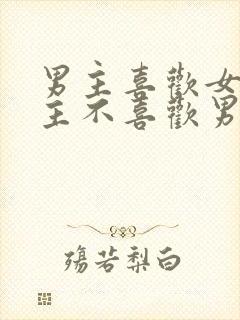 男主喜歡女
主不喜歡男
殤若梨白